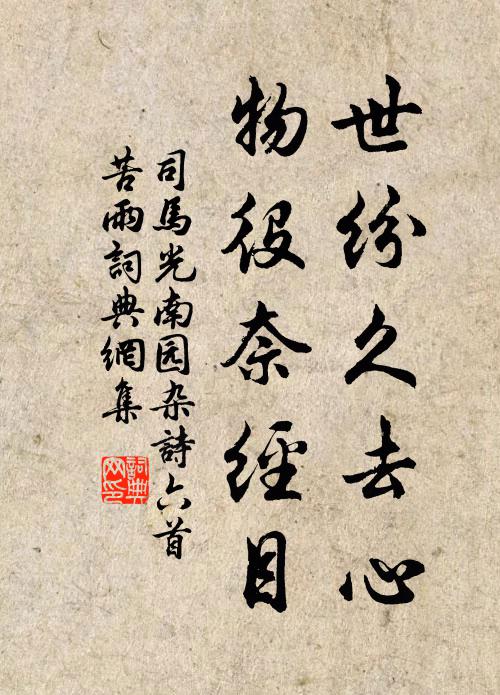 世紛久去心
物役奈經目
司馬光南园杂詩六首
苦雨詞典網集
詞典网印